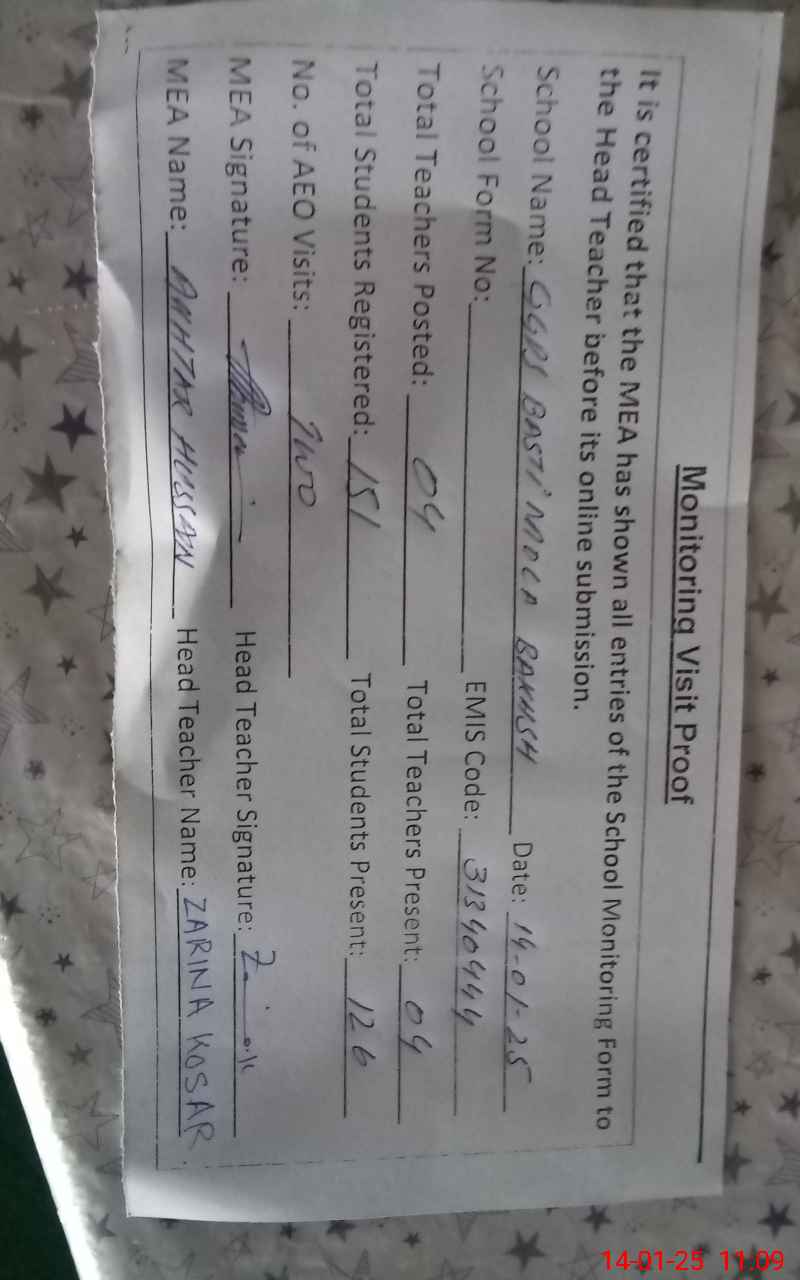 Monitoring Visit Proof
It is certified that the MEA has shown all entries of the School Monitoring Form to
the Head Teacher before its online submission.
School Name: GGPS BASTI MOLA BAKHSH Date: 14-01-25
School Form No: EMIS Code: 31340444
Total Teachers Posted: 04 Total Teachers Present: 04
Total Students Registered: 151 Total Students Present: 126
No. of AEO Visits: TWO
MEA Signature: Head Teacher Signature:
MEA Name: AKHTAR HUSSAIN Head Teacher Name: ZARINA KOSAR
14-01-25 11:09